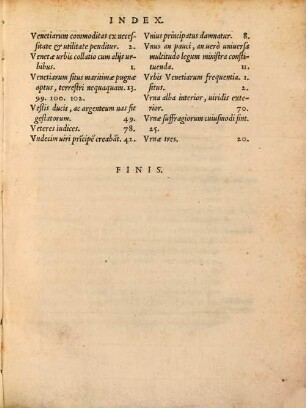 INDEX.
Venetiarum commoditas ex necessitate & utilitate penditur. 2.
Venetæ urbis collatio cum alijs urbibus. 1.
Venetiarum situs maritimæ pugnæ aptus, terrestri nequaquam. 13.
99. 100. 102.
Vestis ducis, ac argenteum uas
gestatorum. 49.
Veteres iudices. 78.
Vndecim uiri prīcipē creabāt. 42.
Vnius principatus damnatur. 8.
Vnus an pauci, an uerò uniuersa
multitudo legum ministra constituenda. 11.
Vrbis Venetiarum frequentia. 1.
situs. 2.
Vrna alba interior, uiridis exterior. 70.
Vrnæ suffragiorum cuiusmodi sint.
25.
Vrnæ tres. 20.
FINIS.